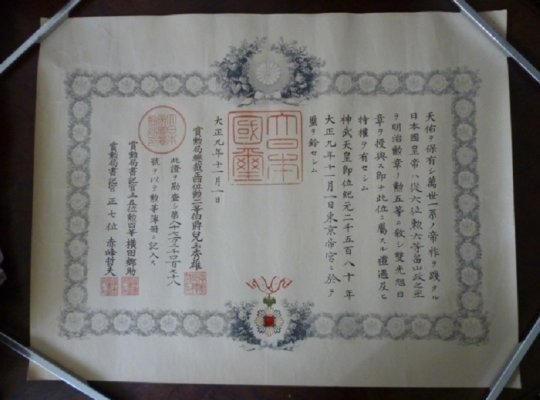 天佑ヲ保有シ萬世一系ノ帝祚ヲ踐タル
日本國皇帝ハ從六位勲六等富山政之
ヲ明治勲章ノ勲五等ニ敍シ雙光旭日
章ヲ授與ス即チ此位ニ屬スル禮遇及ヒ
特權ヲ有セシム
神武天皇即位紀元二千五百八十年
大正九年十一月一日東京帝宮ニ於テ
璽ヲ鈐セシム
大日本
國璽
大正九年十一月一日
賞勲局總裁正四位勲二等伯爵兒玉秀雄
此證ヲ勘査シ第八十七万
號ヲ以テ勲等簿册ニ記入ス
賞勲局書記官正五位勲四等横田郷助
賞勲局書記官正七位赤峰哲夫